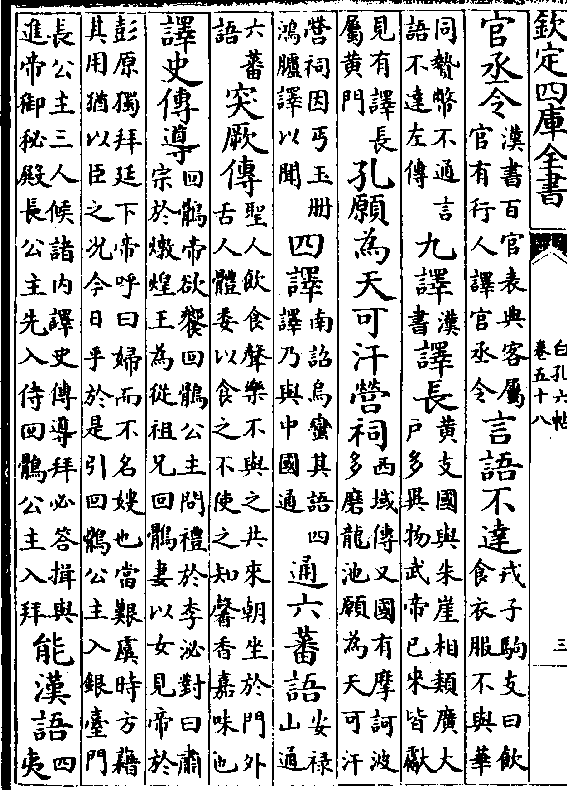 欽定四庫全書
白孔六帖
卷五十八
三
官丞令漢書百官表典客屬官有行人譯官丞令言語不達戎子駒支曰飲食衣服不與華
同贄幣不通言語不達左傳九譯漢書譯長黃支國與朱崖相類廣大戶多異物武帝已來皆獻
見有譯長屬黃門孔願為天可汗營祠西域傳又國有摩訶波多磨龍池願為天可汗
營祠因丐玉册鴻臚譯以聞四譯南詔烏蠻其語四譯乃與中國通通六蕃語安禄山通
六蕃語突厥傳聖人飲食聲樂不與之共來朝坐於門外舌人體委以食之不使之知馨香嘉味也
譯史傳導回鶻帝欲饗回鶻公主問禮於李泌對曰肅宗於燉煌王為從祖兄回鶻妻以女見帝於
彭原獨拜廷下帝呼曰婦而不名嫂也當艱虞時方藉其用猶以臣之况今日乎於是引回鶻公主入銀臺門
長公主三人候諸内譯史傳導拜必答揖與進帝御秘殿長公主先入侍回鶻公主入拜能漢語四夷